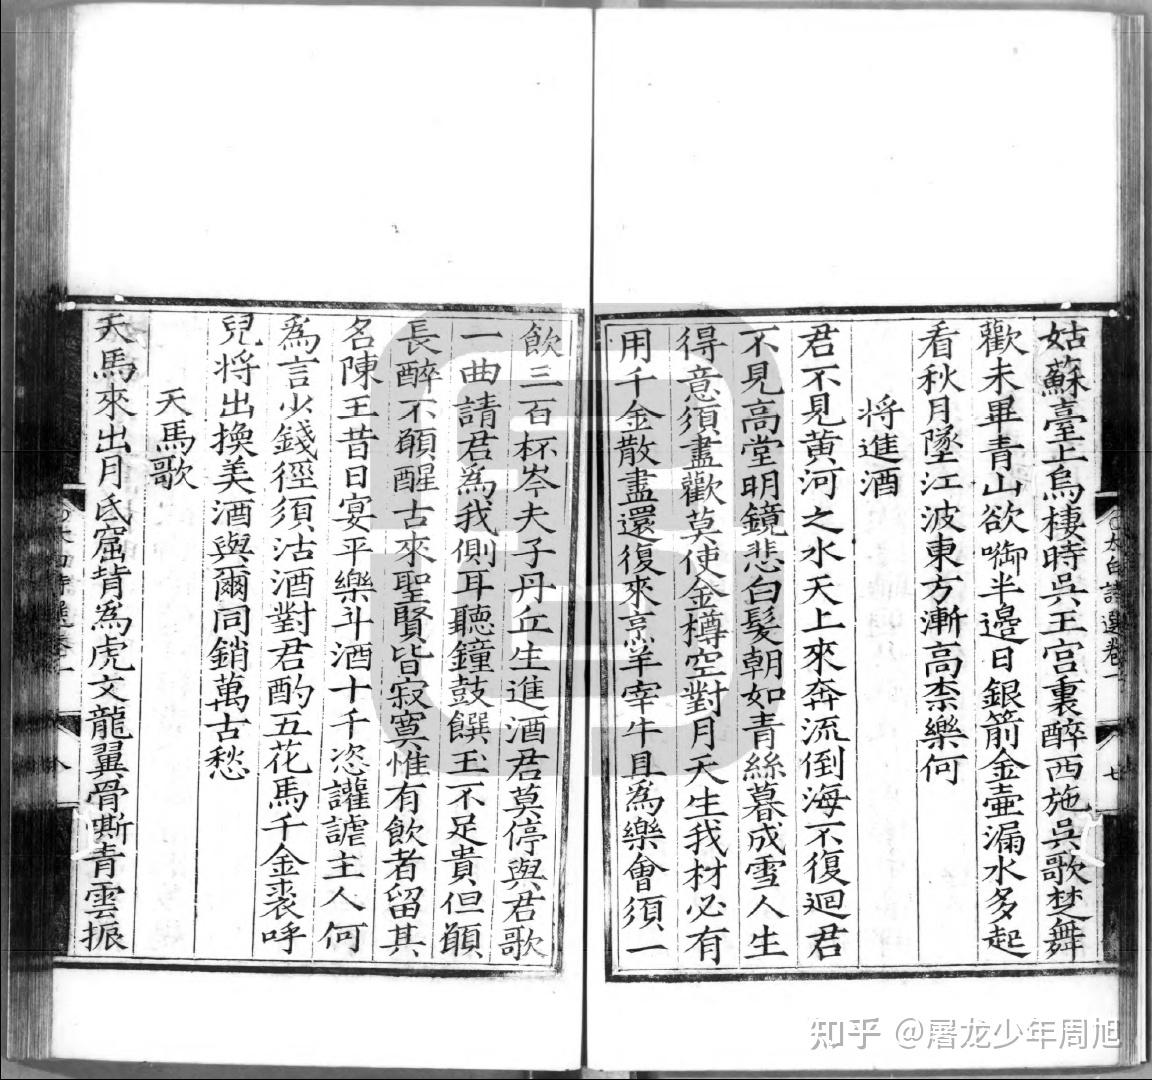 姑蘇臺上烏棲時吳王宮裏醉西施吳歌楚舞
歡未畢青山欲啣半邉日銀箭金壷漏水多起
看秋月墜江波東方漸高柰樂何
將進酒
君不見黄河之水天上來奔流倒海不復迴君
不見高堂明鏡悲白髮朝如青絲暮成雪人生
得意須盡歡莫使金樽空對月天生我材必有
用千金散盡還復來烹羊宰牛且為樂會須一
太白詩選卷一
七
飲三百杯岑夫子丹丘生進酒君莫停與君歌
一曲請君爲我側耳聽鐘鼓饌玉不足貴但願
長醉不願醒古來聖賢皆寂寞惟有飲者留其
名陳王昔日宴平樂斗酒十千恣讙謔主人何
爲言少錢徑須沽酒對君酌五花馬千金裘呼
兒將出換美酒與爾同銷萬古愁
天馬歌
天馬來出月氏窟背爲虎文龍翼骨嘶青雲振
八
知乎 @屠龙少年周旭